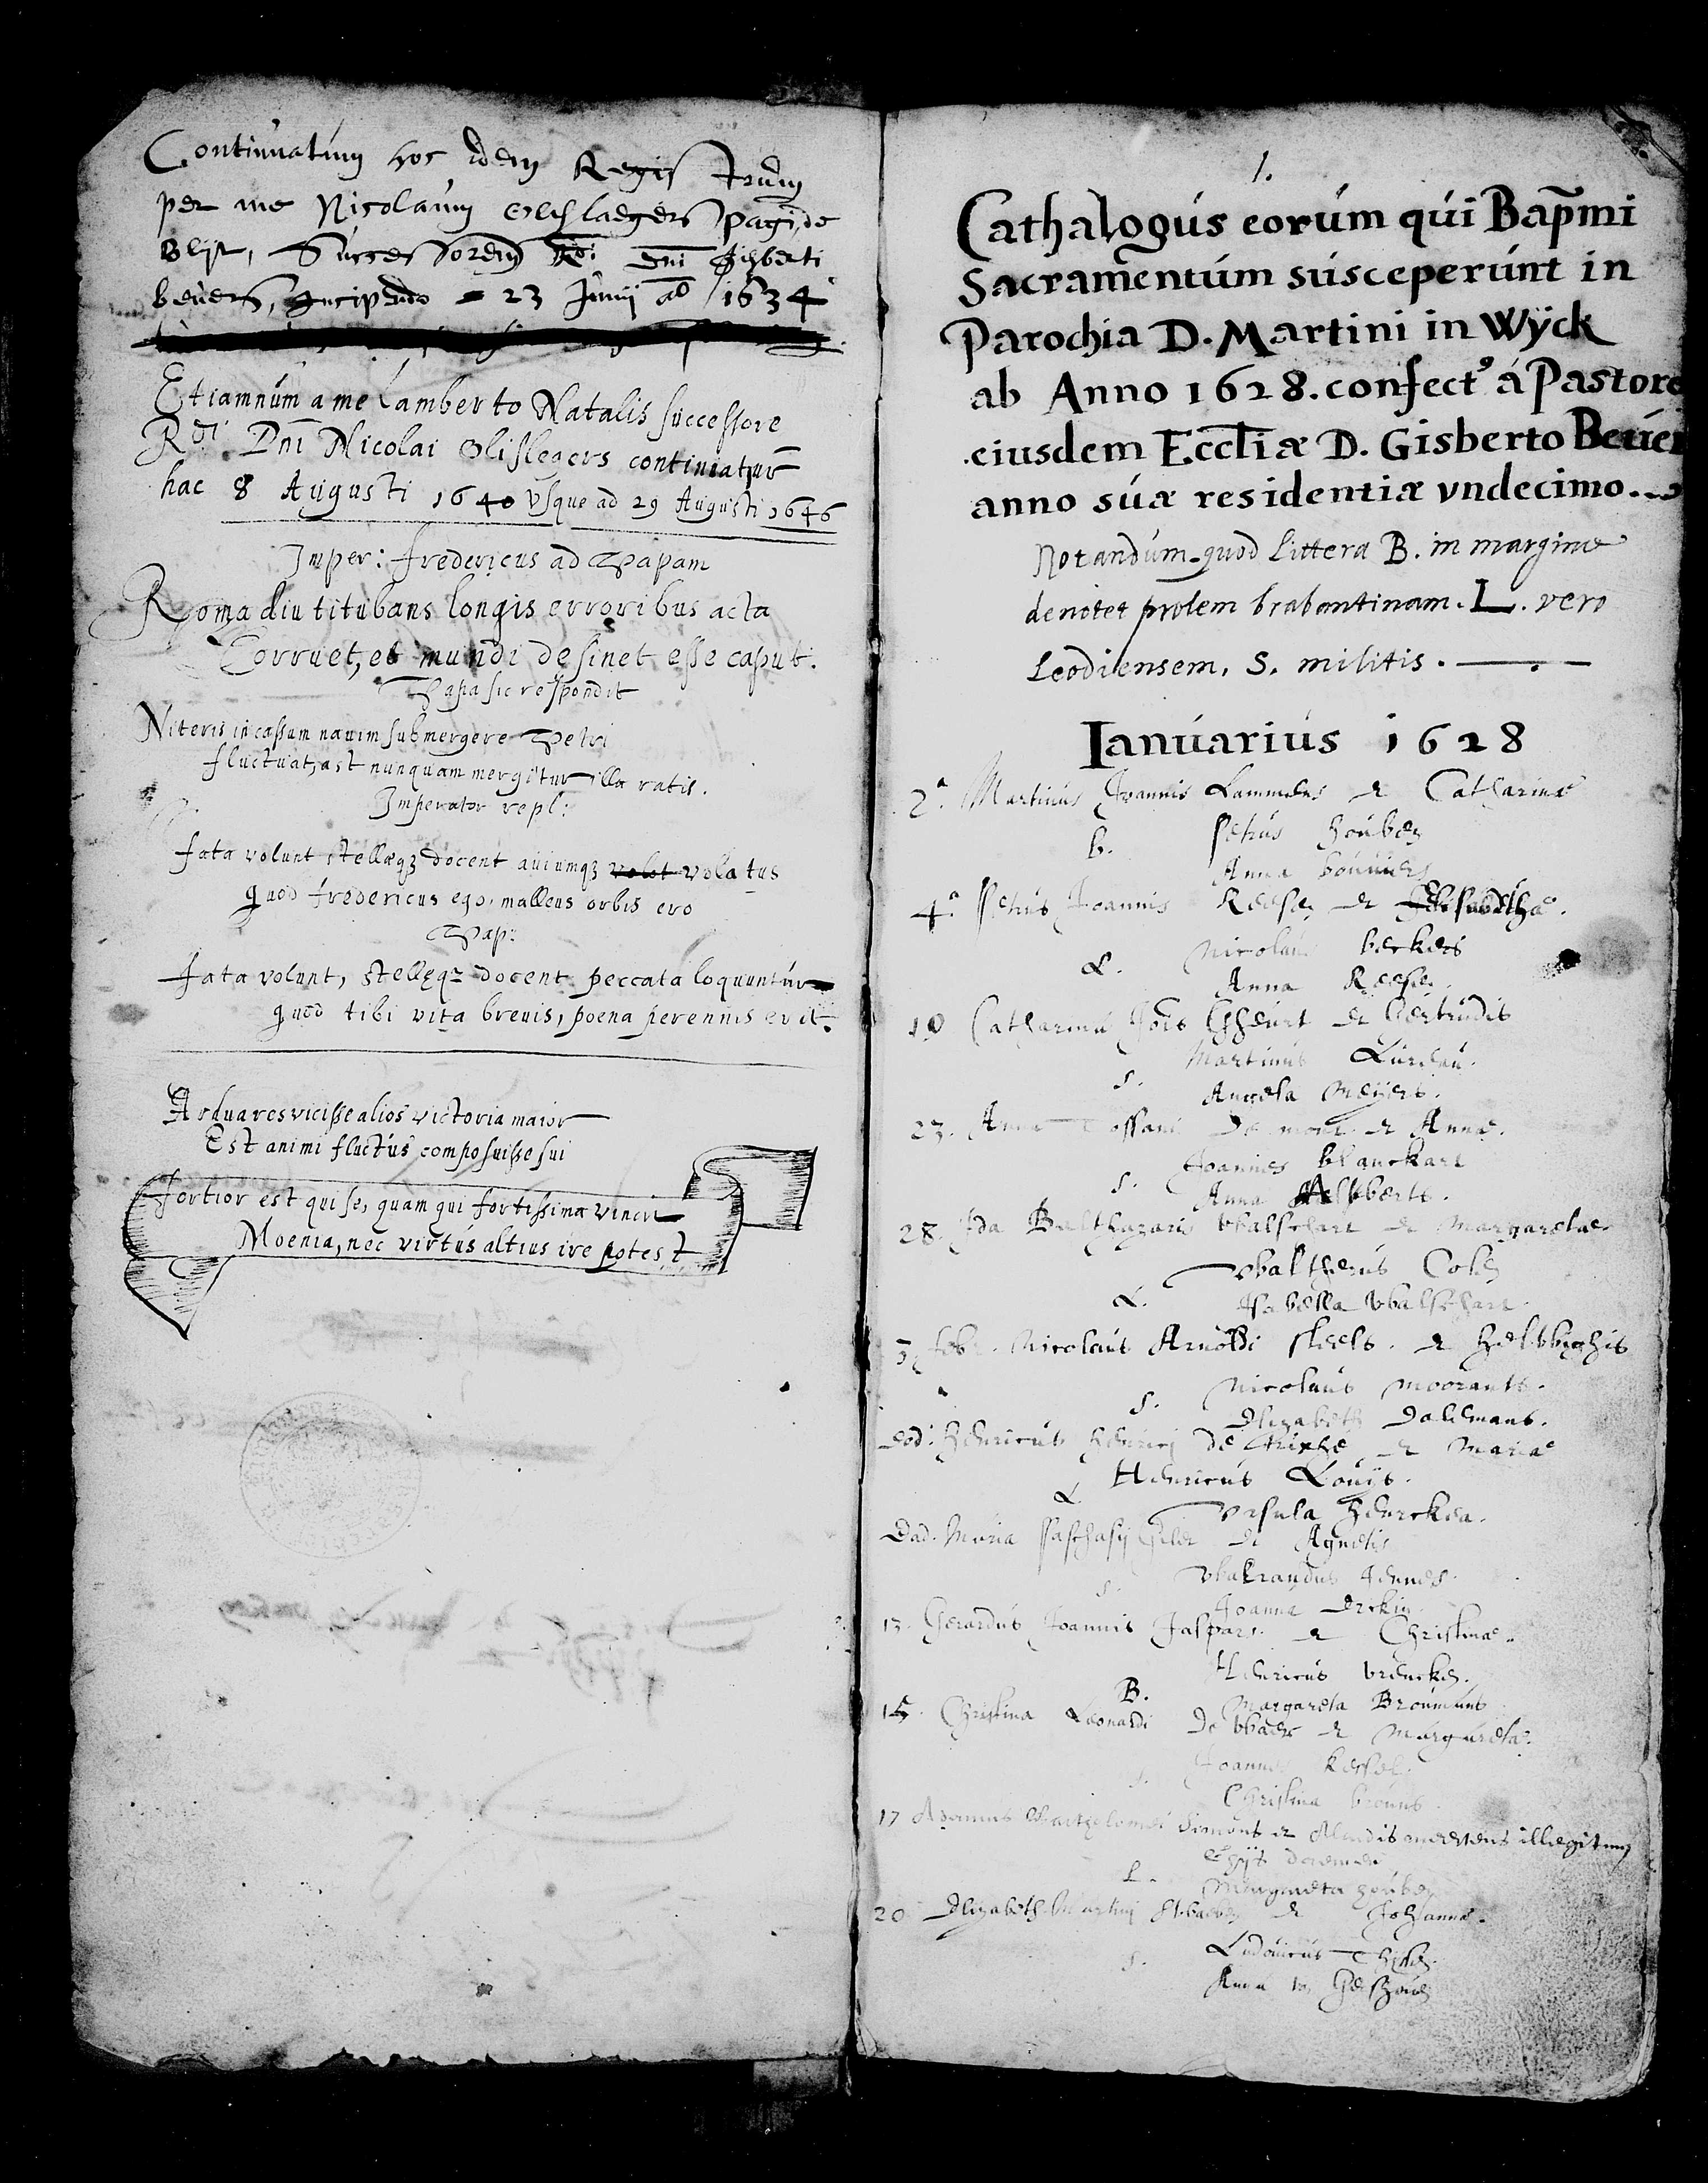 Continuatum hoc idem Registrum
per me Nicolaum Olislaegers pagi de
Blijt, Successorem Rdi Dni Gisberti
beuers, Incipiendo 23 Junij ao 1634
Etiamnum a me Lamberto Natalis successore
Rdi Dni Nicolai Olislegers continuatur
hac 8 Augusti 1640 vsque ad 29 Augusti 1646
Imper: fredericus ad Papam
Roma diu titubans longis erroribus acta
Corruet, et mundi desinet esse caput.
Papa sic respondit
Niteris incassum nauim submergere Petri
fluctuat, ast nunquam mergitur illa ratis.
Imperator repl:
fata volunt stellæq3 docent auiumq3 volat volatus
quod fredericus ego, malleus orbis ero
Pap:
fata volunt, stellęq3 docent peccata loquuntur
quod tibi vita breuis, poena perennis erit.
Ardua res vicisse alios victoria maior
Est animi fluctus composuisse sui
fortior est qui se, quam qui fortissima vincit
Moenia, nec virtus altius ire potest
1.
Cathalogús eorúm qúi Bap̃mi
Sacramentúm súsceperúnt in
Parochia D. Martini in Wÿck
ab Anno 1628. confect9 á Pastore
eiusdem Ecctiæ D. Gisberto Beúer
anno súæ residentiæ vndecimo.
Notandúm quod littera B. in margine
denotet prolem brabantinam. L. vero
Leodiensem, S. militis.
Ianúarius 1628
2a. Martinus Joannis Lammens et Catharinæ
b. Petrus Houben
Anna
4a. Petrus Joannis Reesen et Elisabethæ.
L. Nicolaus beckers
Anna Reesen
10 Catharina Jois et Gertrudis
Martinus
S. Angela Meijers.
23. Anna et Annæ.
Joannes blanckart
S. Anna
28. Ida Balthazaris Walschart et Margaretae
Waltherus Colen
L. Isabella Walschart
3a feb. Nicolaus Arnoldi steels. et Helwighis
S. Nicolaus Moorants.
Elizabeth Dalemans.
eod: Henricus Henrici de et Mariæ
L Henricus Louijs.
Vrsula
Eod. Maria Paschasij et Agnetis
S. Walrandus
Joanna
13. Gerardus Joannis Jaspars et Christinæ.
Henricus vrencken.
B. Margareta Broumans
15. Christina Leonardi de et Margaretæ.
Joannes Kessel.
S. Christina
17 Adamus Bartholomei Simons et illegitimus
L. Margareta Houben
20 Elizabeth Martini et Johannæ.
S. Ludouicus
Anna